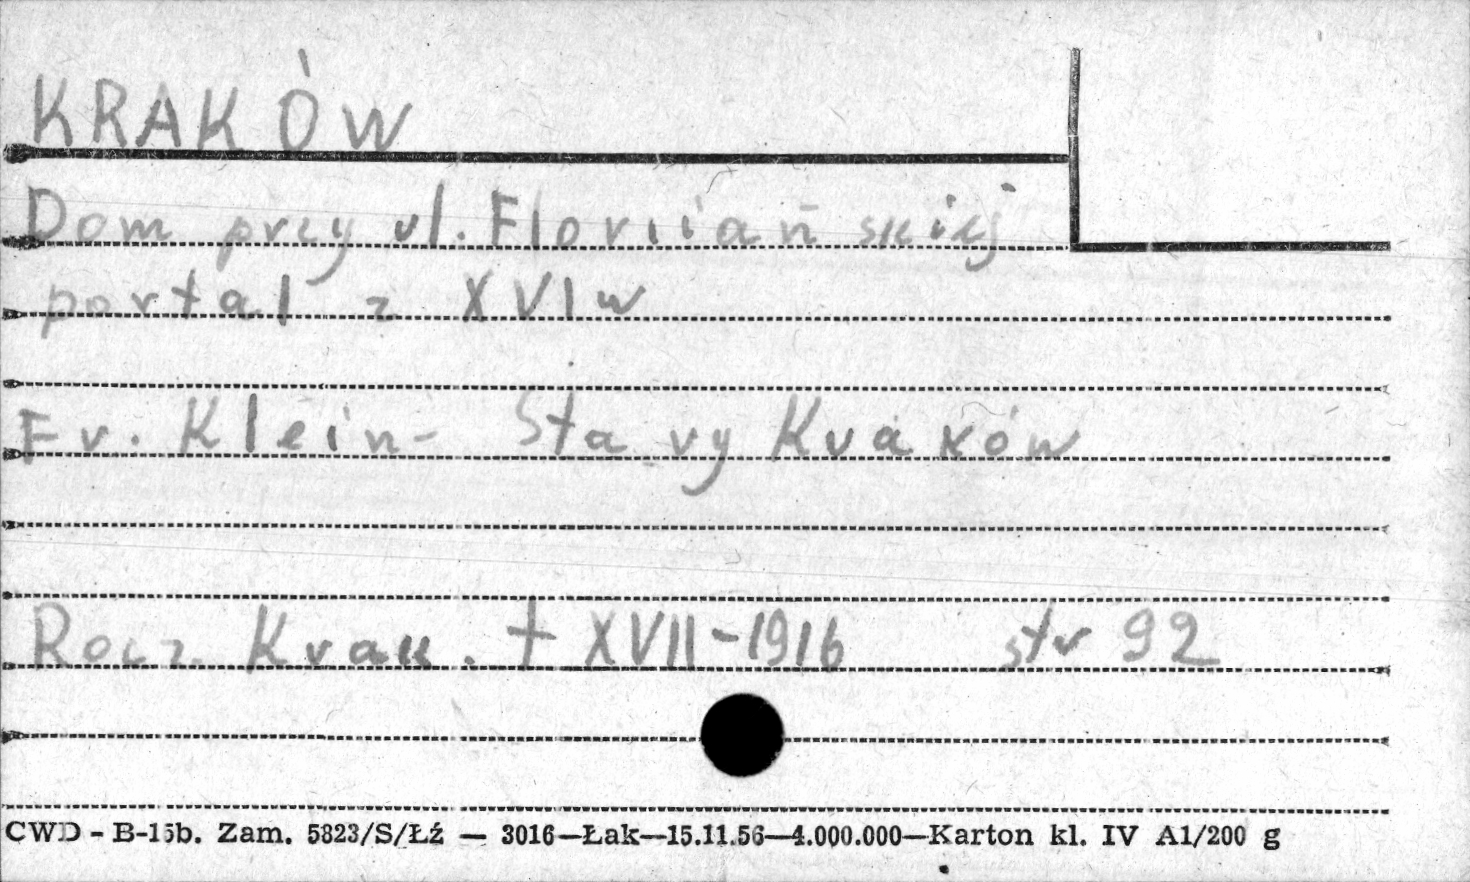 KRAKÓW
Dom przy ul. Floriiańskiej
portal z XVI w
Fr. Klein - Stary Kraków
Rocz. Krak. t XVII - 1916 str 92
CWD - B-15b. Zam. 5823/S/Łź — 3016—Łak—15.11.56—4.000.000—Karton kl. IV A1/200 g